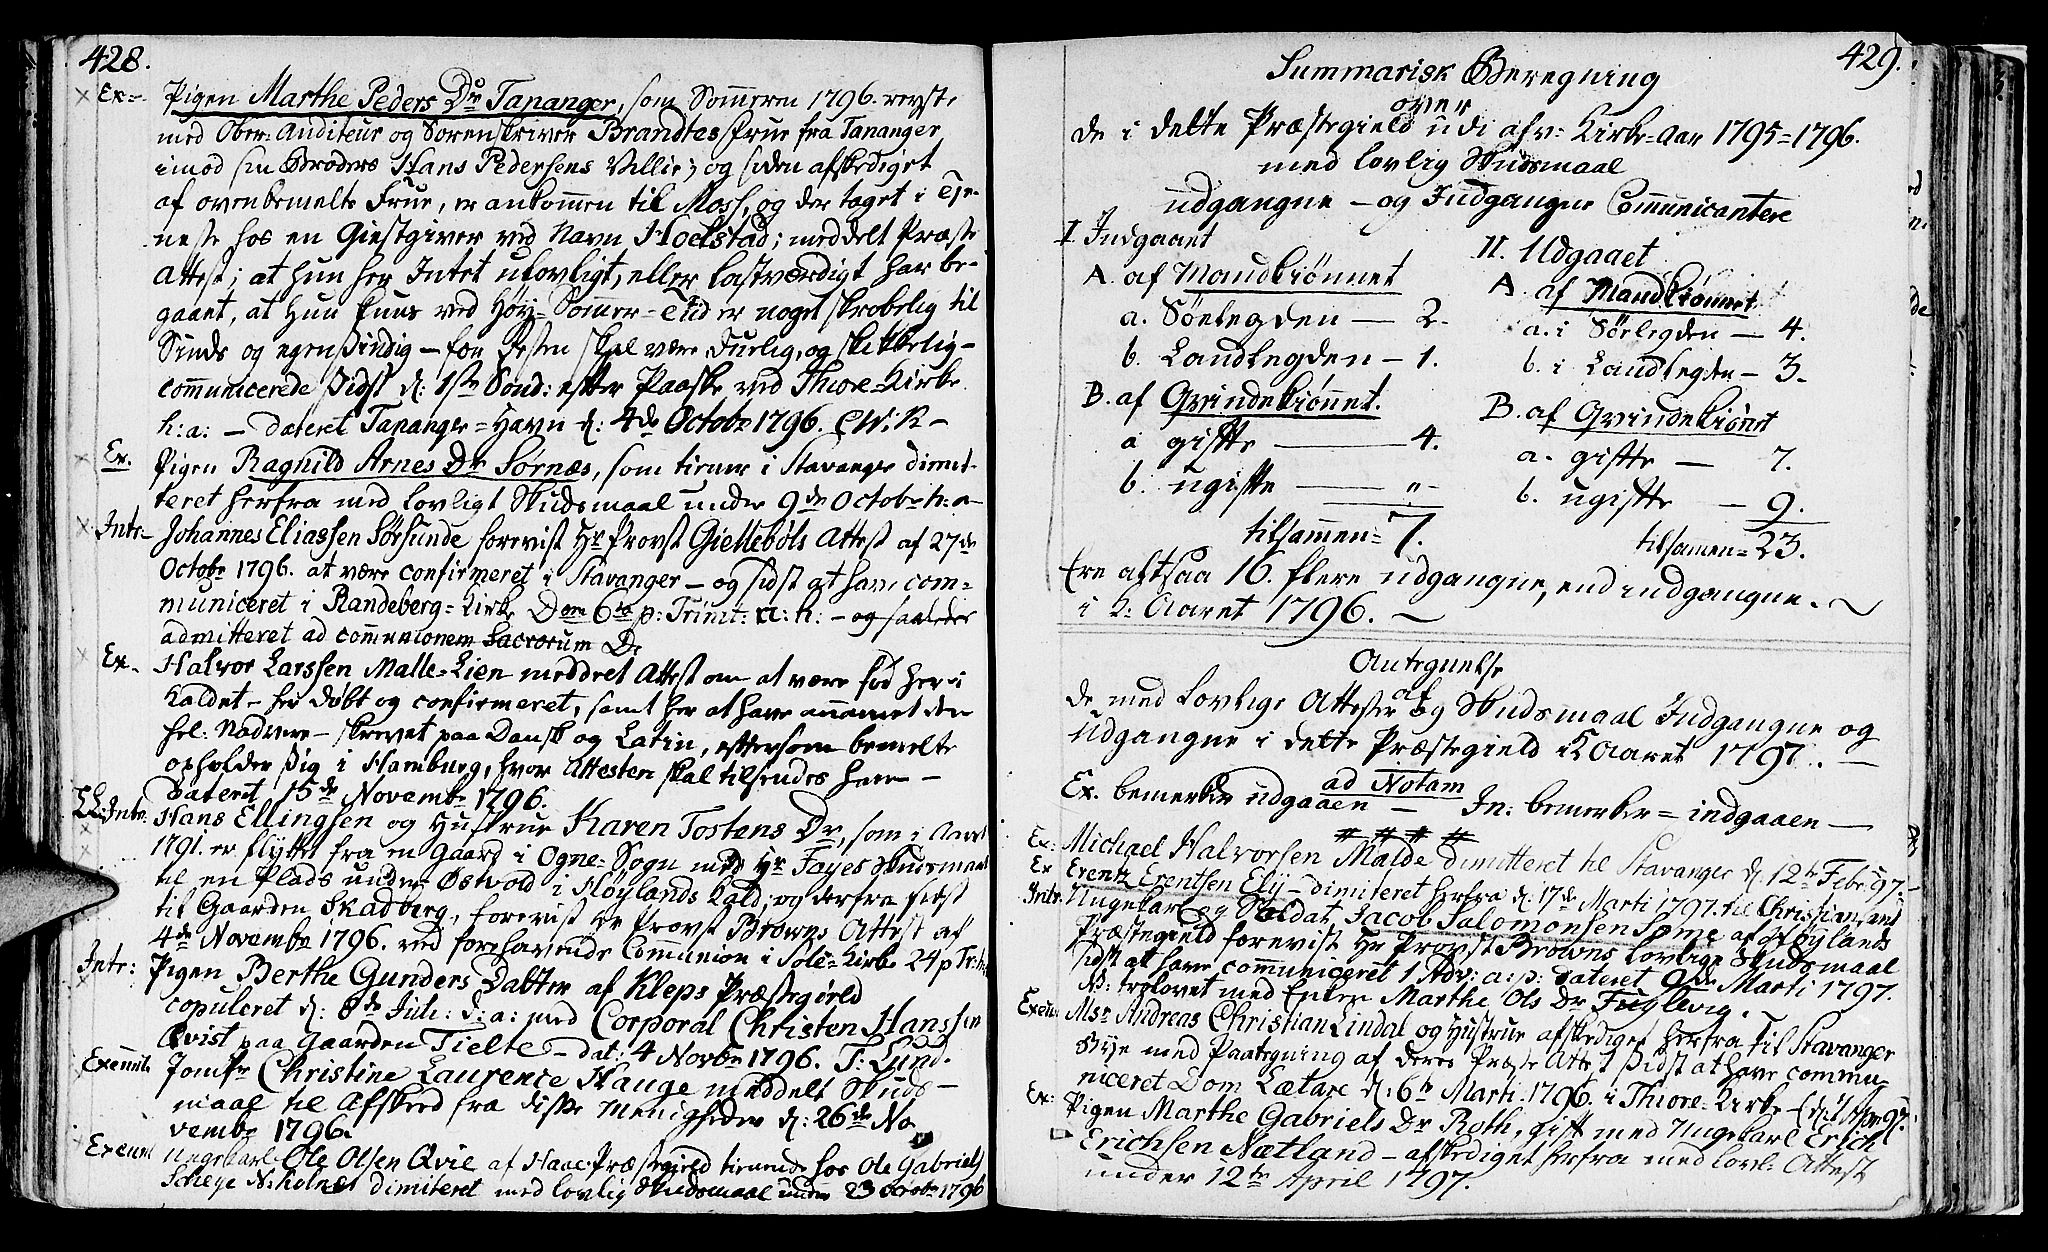 428.
Ex=. Pigen Marthe Peders Dr Tananger, som Sommeren 1796. reyste
med Ober-Auditeur og Sorenskriver Brandtes Frue fra Tananger
imod sin Broders Hans Pedersens Villie; og siden afskediget
af ovenbemelte Frue, er ankommen til Moss, og der taget i Tje-
neste hos en Giestgiver ved Navn Hoelstad; meddelt Præste
Attest; at hun her Intet ulovligt, eller lastværdigt har be-
gaaet, at hun kuns ved Høy-Sommer-Tid er noget skrøbelig til
Sinds og egensindig - for Resten skal være Duelig, og skikkelig -
communicerede sidst d: 1ste Sönd: efter Paaske ved Thiore-Kirke
h: a: - dateret Tananger=Havn d: 4de Octobr 1796. CW:K -
Ex. Pigen Ragnild Arnes Dr Sørnæs, som tiener i Stavanger dimit-
teret herfra med lovligt Skudsmaal under 9de Octobr h: a-
Intr- Johannes Eliassen Sørsunde forevist Hr Provst Giellebøls Attest af 27de
Octobr 1796. at være confirmeret i Stavanger - og sidst at have com=
municeret i Randeberg=Kirke Dom 6ta p: Trinit: a: h: - og saaledes
admitteret ad communionem Sacrorum
Ex- Halvor Larssen Malle=Lien meddelt Attest om at være fød her i
Kaldet - her døbt og confirmeret, samt her at have annamet den
hel: Nadvere - skrevet paa Dansk og Latin, eftersom bemelte
opholder sig i Hamburg, hvor Attesten skal tilsendes ham -
Dateret 15de Novembr 1796.
Intr: Hans Ellingsen og Hustrue Karen Tostens Dr, som i Aaret
1791. er flyttet fra en Gaard i Ogne=Sogn med Hr Fayes Skudsmaal
til en Plads under Osvold i Høylands Kald; og derfra sidst
til Gaarden Skadberg, forevist Hr Provst Browns Attest af
4de Novembr 1796. ved forehavende Communion i Sole=Kirke 24 p Tr:
Intr: Pigen Berthe Gunders Datter af Kleps Præstegield
copuleret d: 8de Julii: d: a: med Corporal Christen Hanssen
Qvist paa Gaarden Tielte - dat: 4 Novbr 1796. T: Lund.
Exeunt. Jomfr Christine Laurence Hauge meddelt Skuds-
maal til Afsked fra disse Menigheder d: 26de No
vembr 1796.
Exeunt Ungekarl Ole Olsen Qvie af Haae Præstegield tienende hos Ole Gabriels
dimiteret med lovlig Skudsmaal under 23 Octobr 1796
429.
Summarisk Beregning
over
de i dette Præstegield udi afv: Kirke-Aar 1795=1796.
med lovlig Skudsmaal
udgangne - og Indgangne Communicantere
I Indgaaet
A. af Mandkiønnet
a. Söelegden — 2.
b. Landlegden — 1.
B. af Qvindekiønnet.
a gifte — 4.
b. ugifte — „ -
tilsammen= 7.
II. Udgaaet
A af Mandkiønnet
a. i Sörlegden — 4.
b. i Landlegden — 3.
B. af Qvindekiönet
a. gifte — 7.
b. ugifte — 9.
tilsamen= 23.
Ere altsaa 16. flere udgangne, end indgangne.
i K: Aaret 1796.
Antegnelse
de med lovlige Attester af og Skudsmaal Indgangne og
Udgangne i dette Præstegield i K Aaret 1797.
ad Notam
Ex. bemerker udgaaen — In: bemerker= indgaaen —
Ex: Michael Halvorsen Malde dimitteret til Stavanger d: 12te Febr: 97. -
Ex Erentz Erentsen Elÿ - dimiteret herfra d: 17de Marti 1797. til Christiansand
Intr. Ungekarl og Soldat Jacob Salomonsen Sømme af Høylands
Præstegield forevist Hr Provst Browns lovlige Skudsmaal
sidst at have communiceret 1 Adv: a: p: dateret 9de Marti 1797.
NB: trolovet med Enken Marthe Ols Dr Fuglevig.
Exeunt Msr Andreas Christian Lindal og Hustrue afskediget herfra til Stavanger
Bye med Paategning af deres Præste Attest sidst at have commu-
niceret Dom Lætare d: 6te Marti. 1796. i Thiore=Kirke
Ex: Pigen Marthe Gabriels Dr Roth, gift med Ungekarl Erich
Erichsen Nætland - afskediget herfra med lovl: Attest
under 12te April 1797.